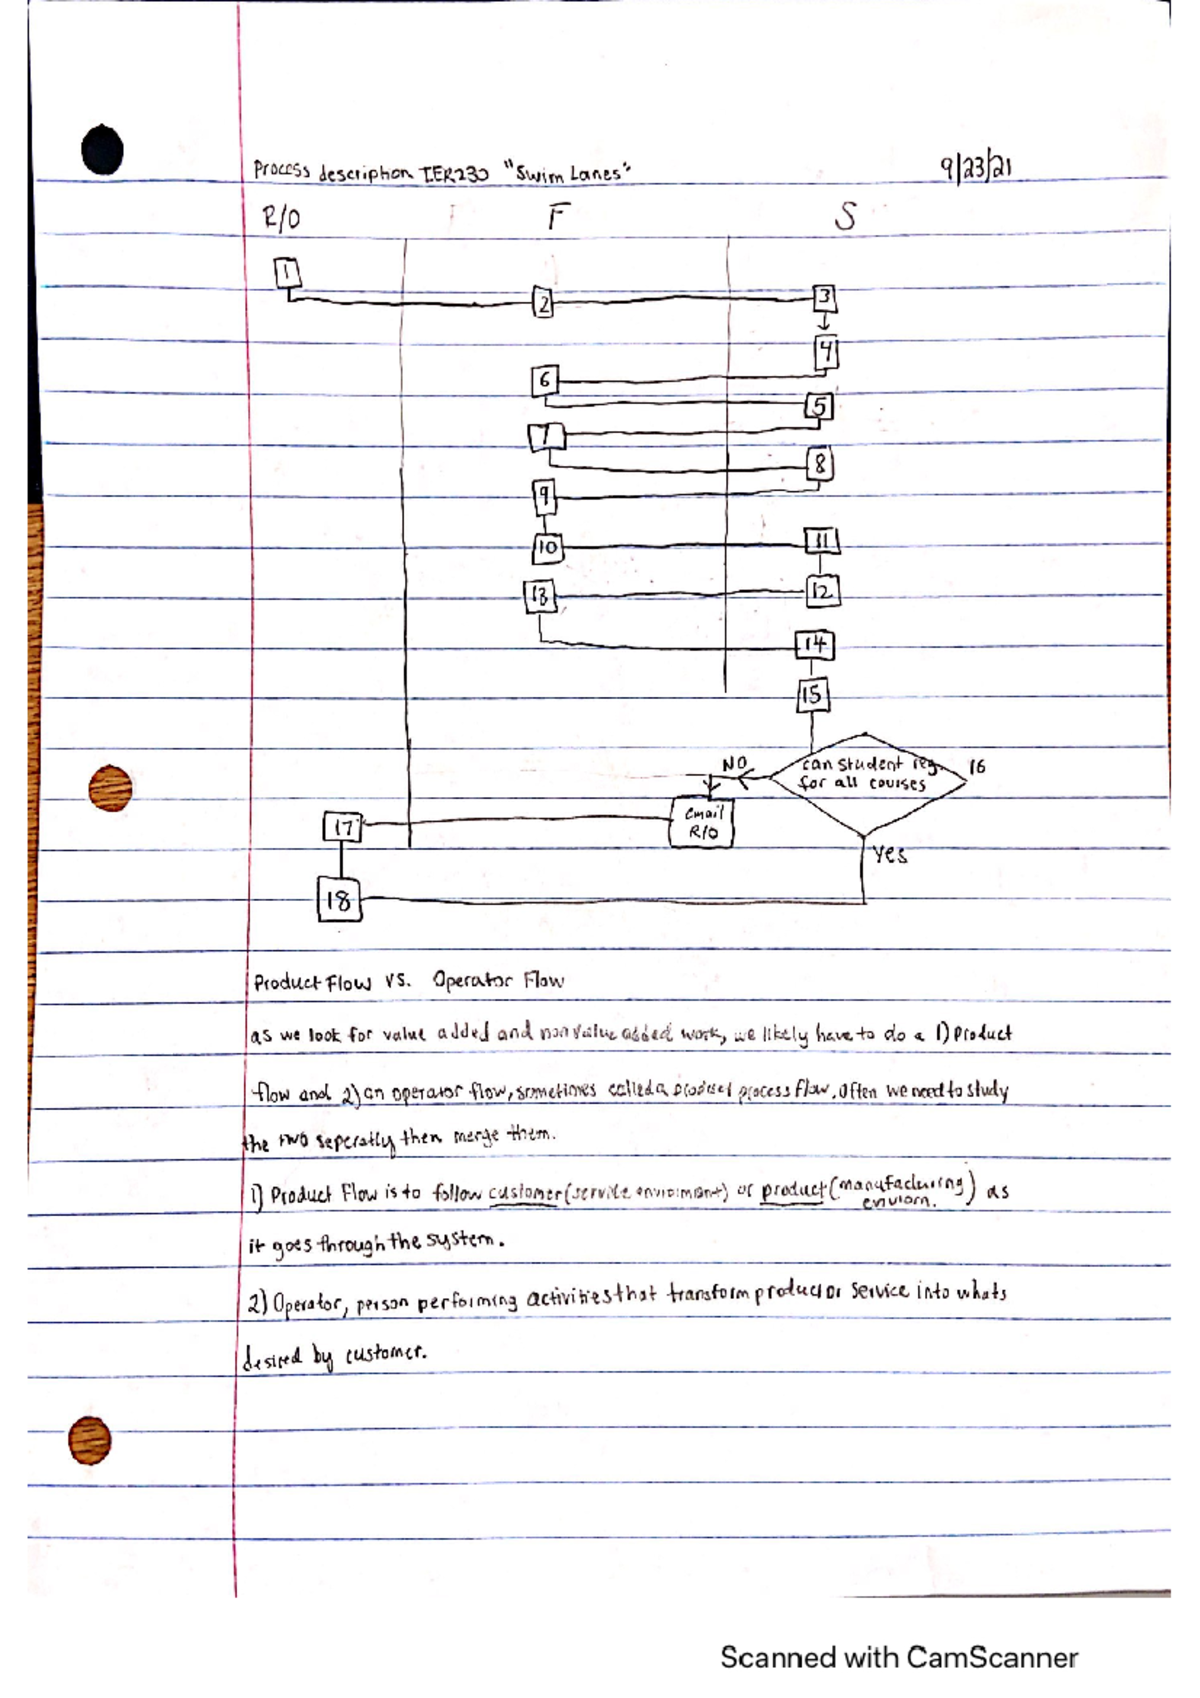 Process description IER230 "Swim Lanes" 9/23/21
R/O F S
1
2 3
4
6
5
7
8
9
10 11
13 12
14
15
NO can student reg. 16
for all courses
17 email
R/O
Yes
18
Product Flow VS. Operator Flow
as we look for value added and non value added work, we likely have to do a 1) Product
flow and 2) an operator flow, sometimes called a product process flow. Often we need to study
the two seperatly then merge them.
1) Product Flow is to follow customer (service enviorment) or product (manufacturing enviorn.) as
it goes through the system.
2) Operator, person performing activities that transform product or service into whats
desired by customer.
Scanned with CamScanner